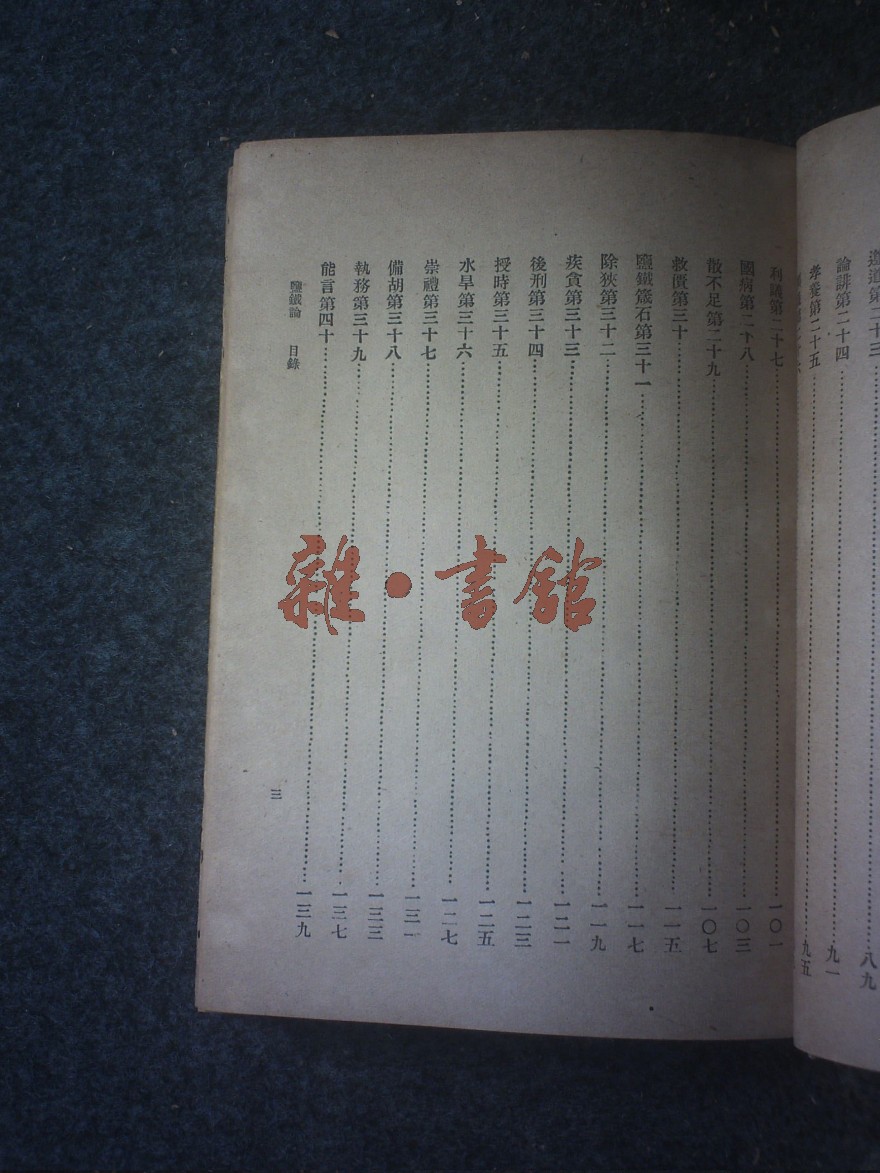 遵道第二十三……八九
論誹第二十四……九一
孝養第二十五……九五
利議第二十七……一〇一
國病第二十八……一〇三
散不足第二十九……一〇七
救匱第三十……一一五
鹽鐵箴石第三十一……一一七
除狹第三十二……一一九
疾貪第三十三……一二一
後刑第三十四……一二三
授時第三十五……一二五
水旱第三十六……一二七
崇禮第三十七……一三一
備胡第三十八……一三三
執務第三十九……一三七
能言第四十……一三九
鹽鐵論 目錄
三
雜·書館